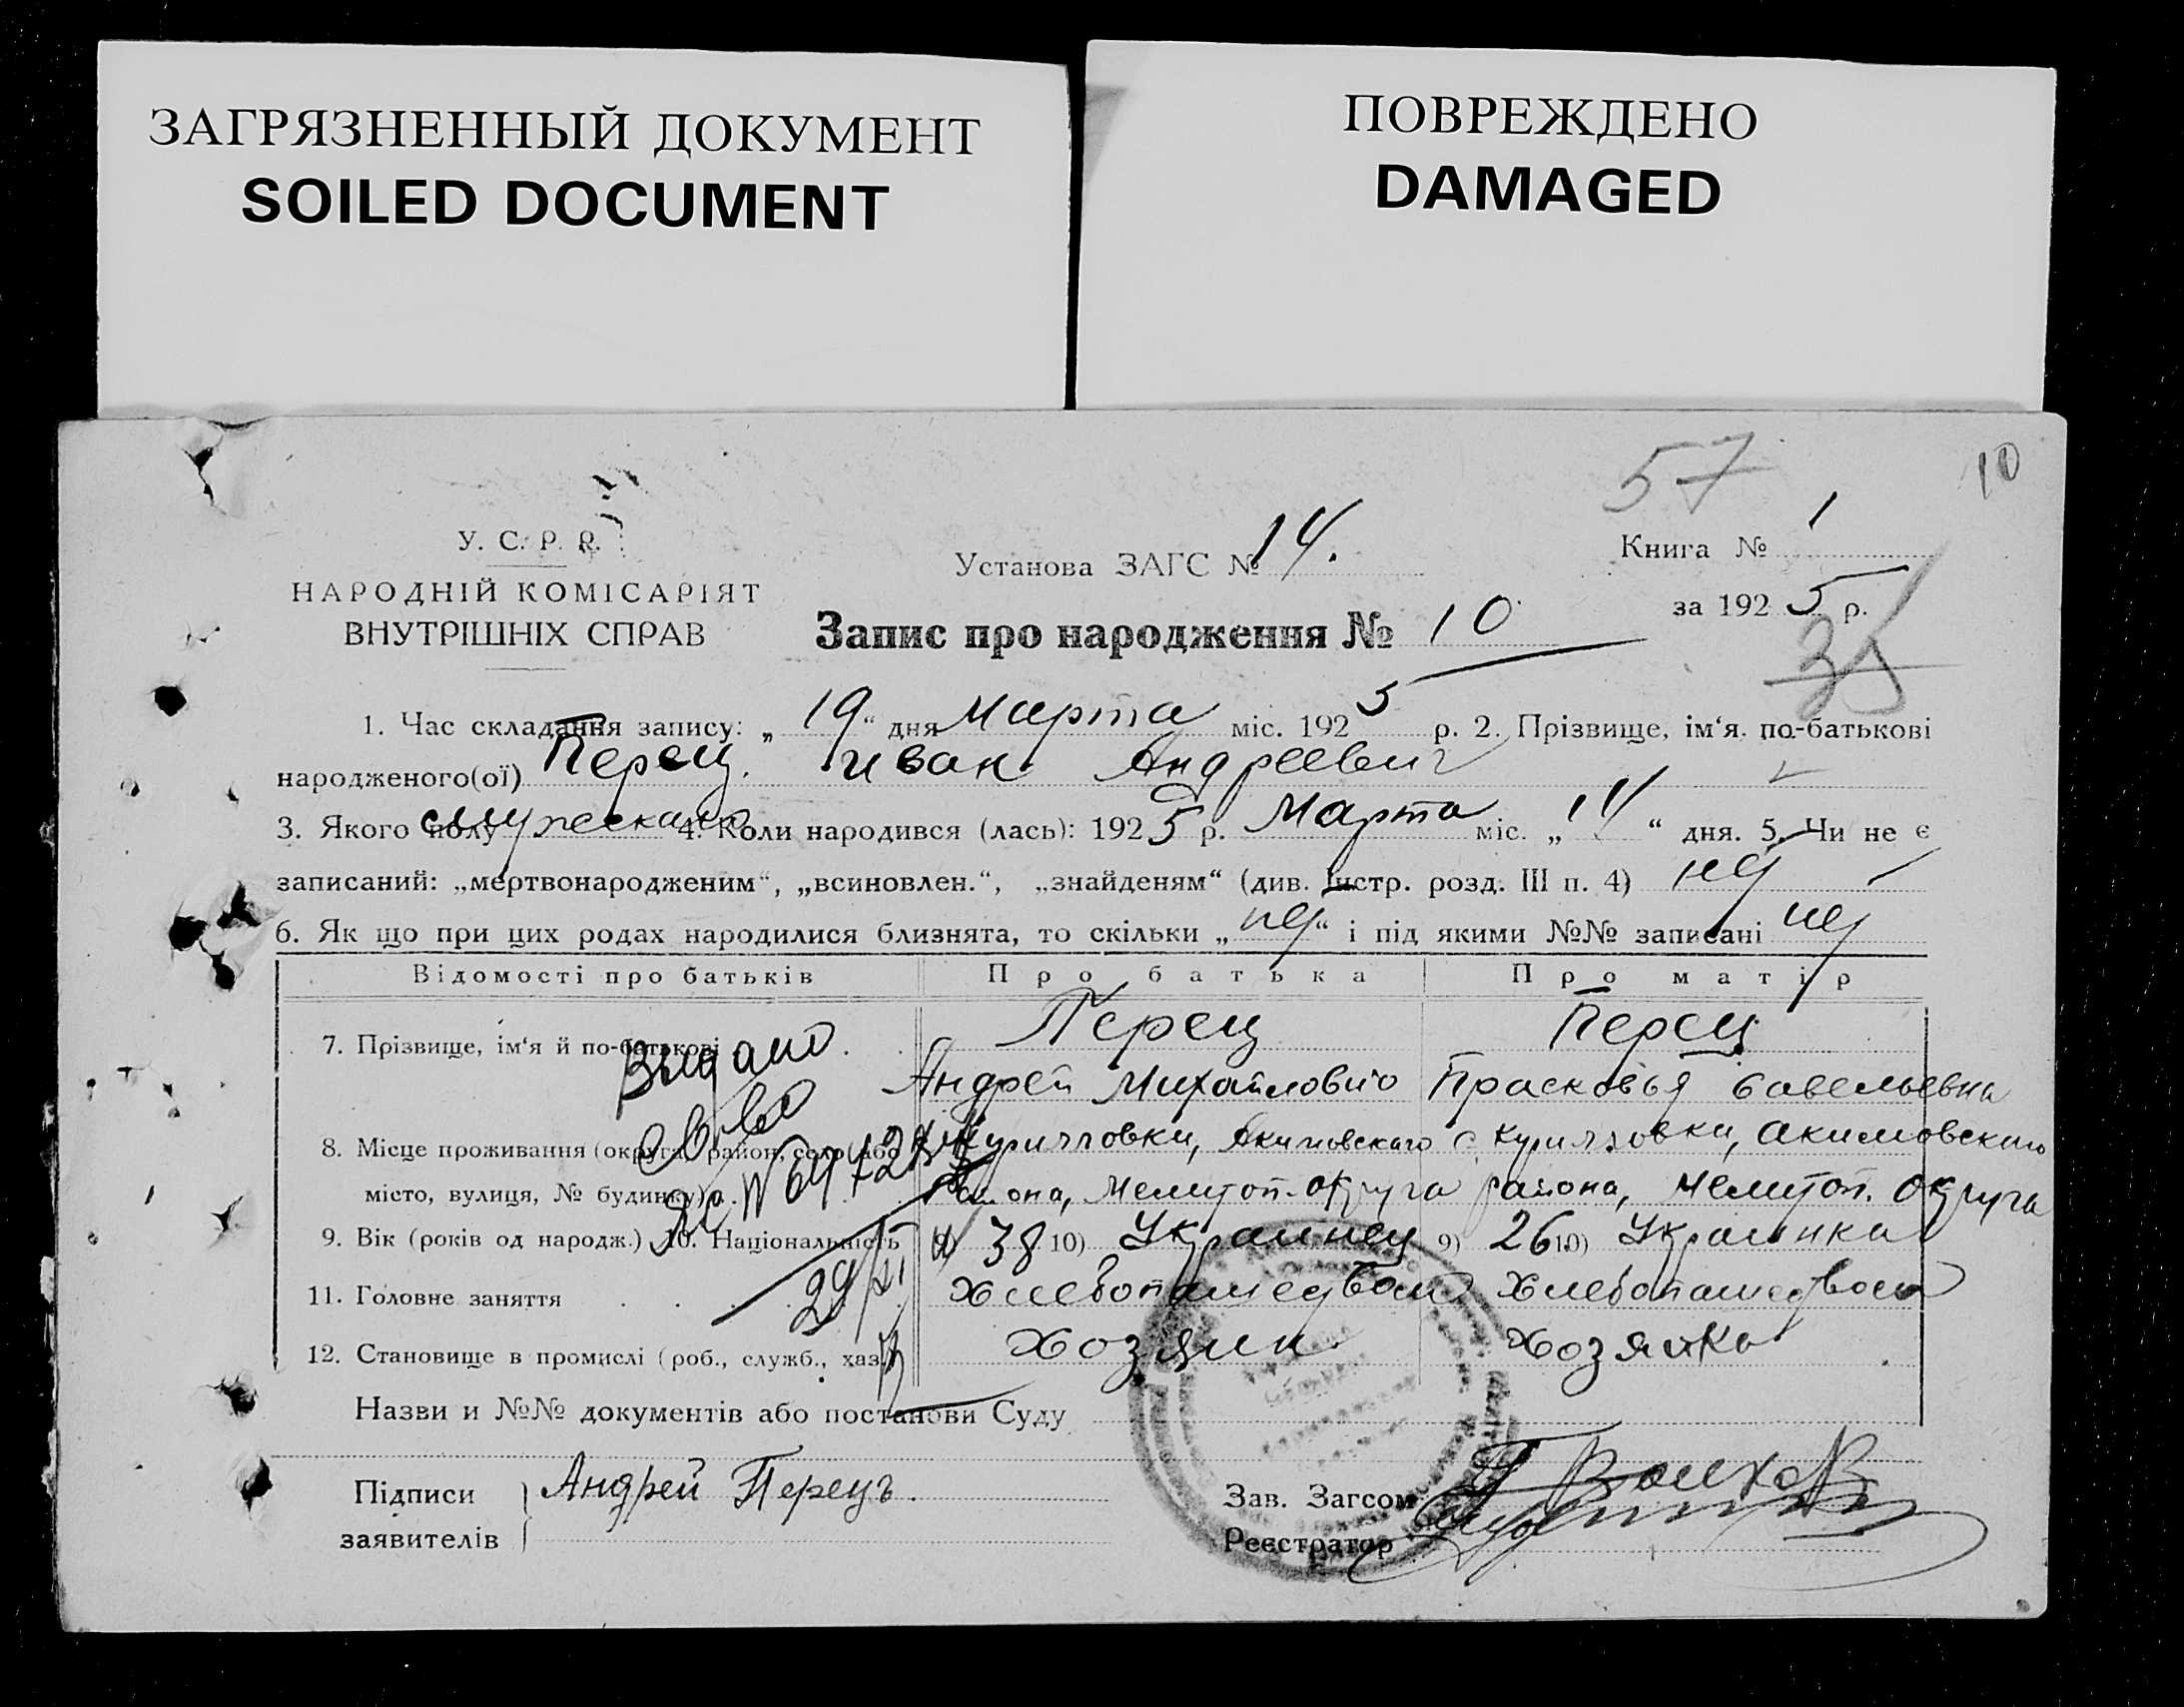 ЗАГРЯЗНЕННЫЙ ДОКУМЕНТ
SOILED DOCUMENT
ПОВРЕЖДЕНО
DAMAGED
57
10
У. С. Р. Р.
НАРОДНІЙ КОМІСАРІЯТ
ВНУТРІШНІХ СПРАВ
Установа ЗАГС № 14.
Книга № 1
за 1925 р.
Запис про народження № 10
35
1. Час складання запису: „19“ дня Марта міс. 1925 р. 2. Прізвище, ім‘я, по-батькові
народженого(ої) Перец Иван Андреевич
3. Якого полу мужеского 4. Коли народився (лась): 1925 р. Марта міс. „14“ дня. 5. Чи не є
записаний: „мертвонародженим“, „всиновлен.“, „знайденям“ (див. Інстр. розд. III п. 4) нет
6. Як що при цих родах народилися близнята, то скільки „нет“ і під якими №№ записані нет
Відомості про батьків Про батька Про матір
7. Прізвище, ім‘я й по-батькові Перец Перец
Андрей Михайлович Прасковья Савельевна
Видано
8. Місце проживання (округа, район, село або Акимовскаго Акимовскаго
місто, вулиця, № будинку) района, Мелитоп. округа района, Мелитоп. округа
9. Вік (років од народж.) 10. Національність 9) 38 10) Украинец 9) 26 10) Украинка
11. Головне заняття Хлебопашедвом Хлебопашедвом
29/XI
12. Становище в промислі (роб., служб., хаз.) хозяин хозяйка
Назви и №№ документів або постанови Суду
Підписи
заявителів
Андрей Перецъ.
Зав. Загсом
Реєстратор